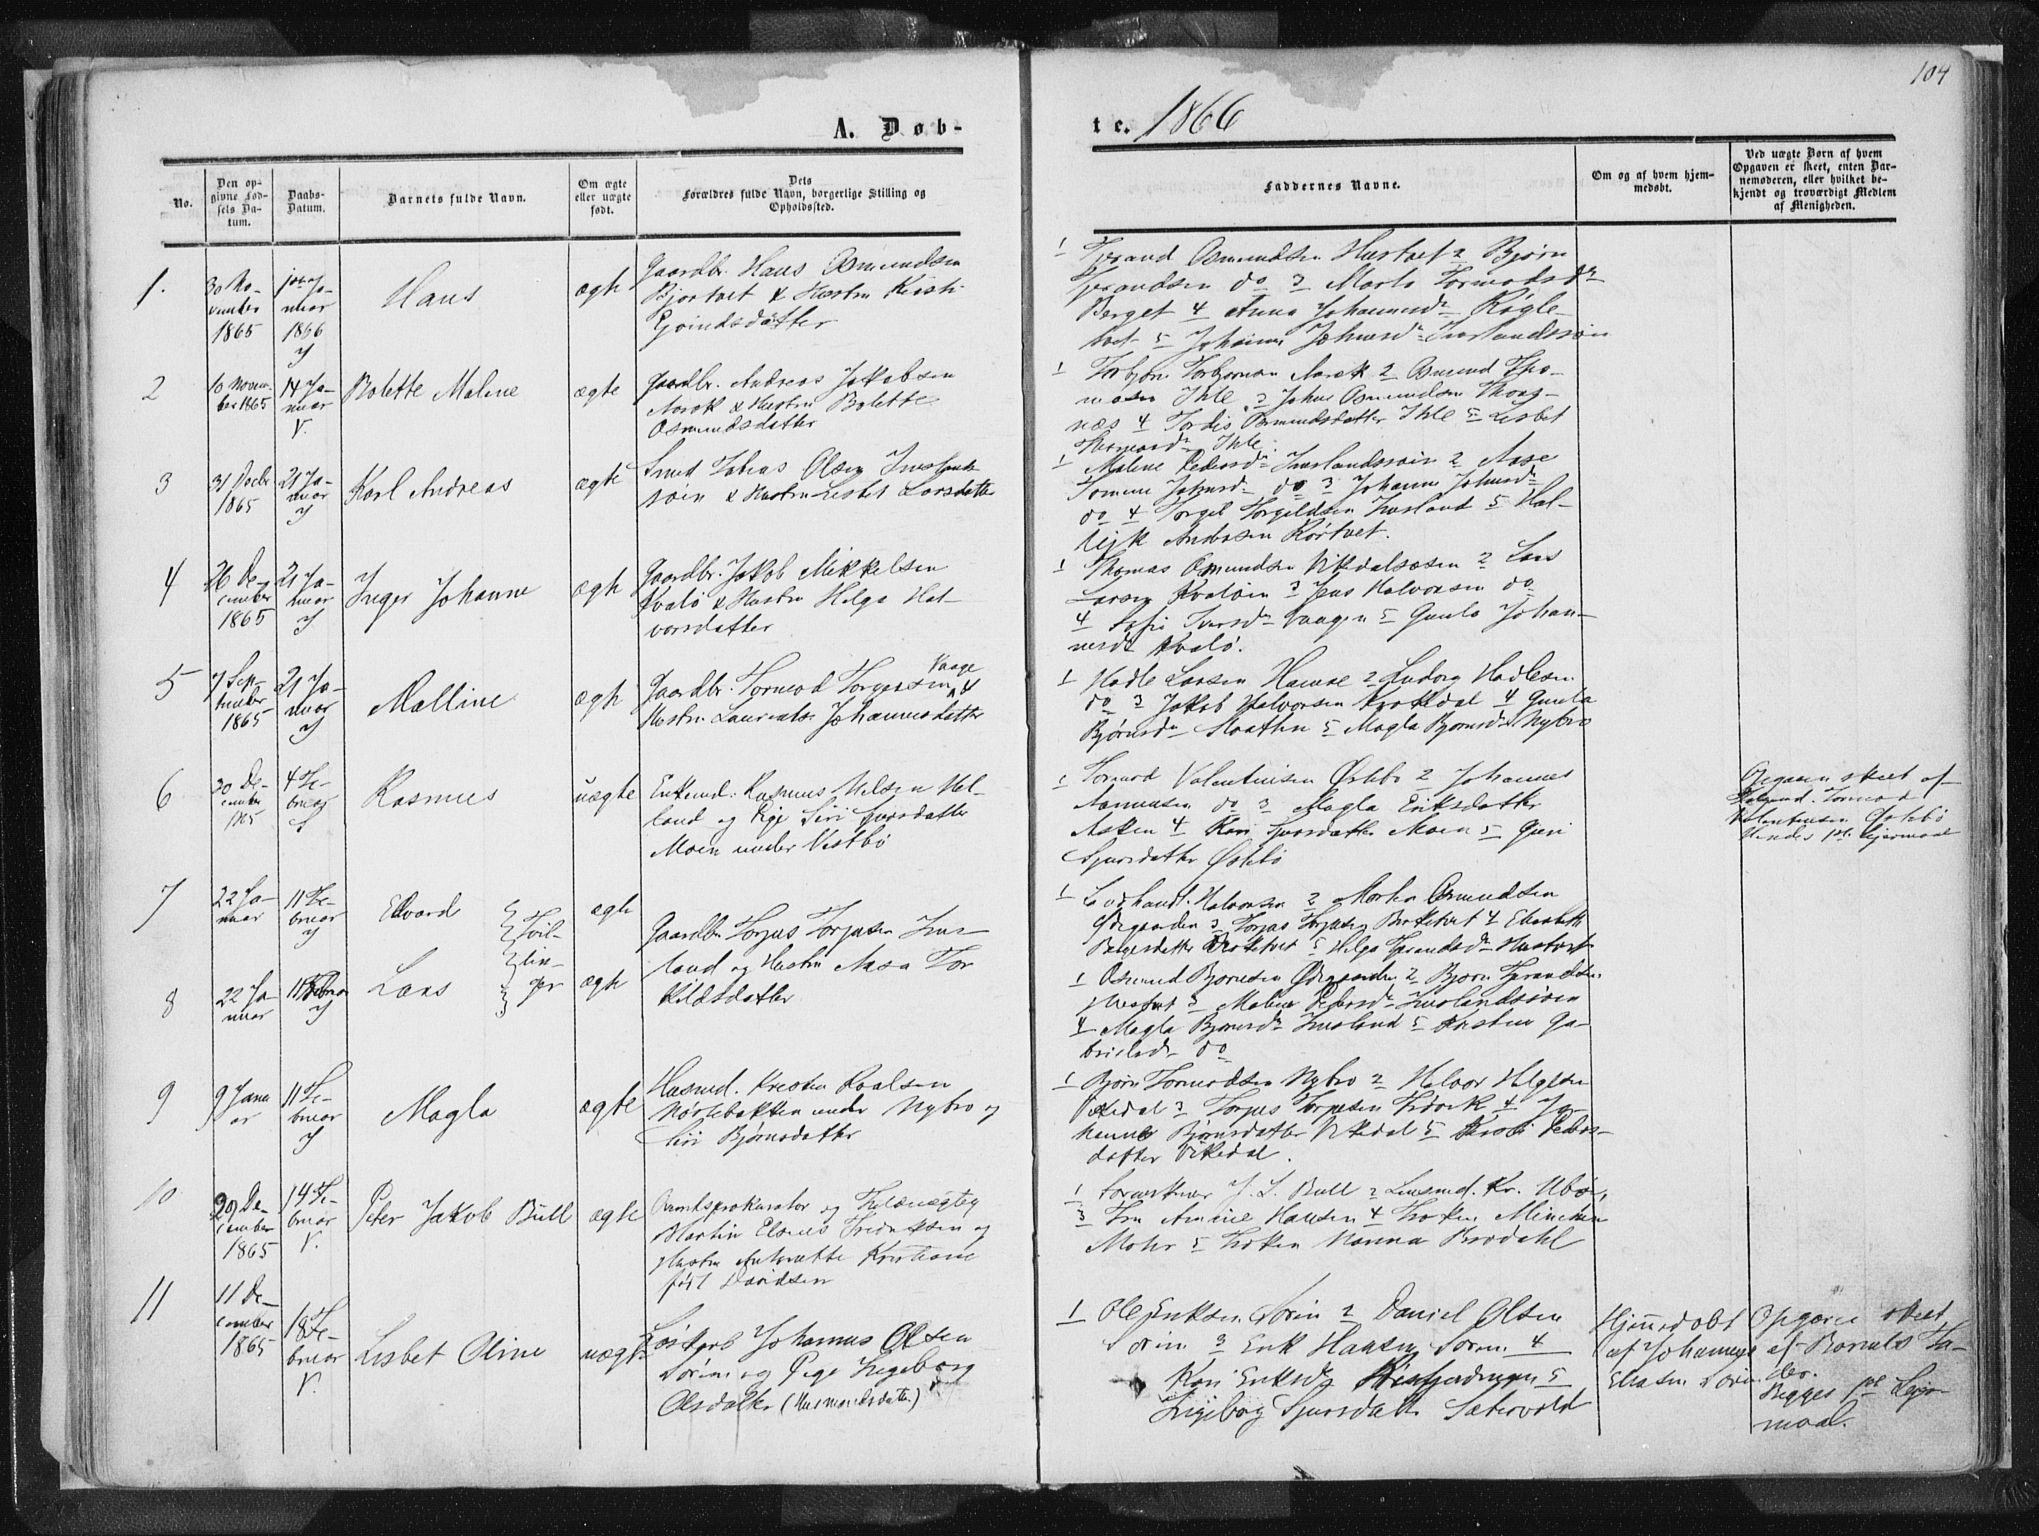 104
A. Døb-
te. 1866
No.
Den op-
givne Fød-
sels Da-
tum.
Daabs-
Datum.
Barnets fulde Navn.
Om ægte
eller uægte
født.
Dets
Forældres fulde Navn, borgerlige Stilling og
Opholdssted.
Faddernes Navne.
Om og af hvem hjem-
medøbt.
Ved uægte Børn af hvem
Opgaven er skeet, enten Bar-
nemoderen, eller hvilket be-
kjendt og troværdigt Medlem
af Menigheden.
1.
30 No-
vember
1865
1ste Ja-
nuar
1866
J
Hans
ægte
Gaardbr. Hans Osmundsen
& Hustru Kirsti
Ejvindsdatter
1 Tjerand Osmundsen Hustvet 2 Bjørn
Tjerandsen do 3 Marta Tormodsdr
Berget 4 Anna Johannesdr
5 Johanne Johnsdr Imslandssøin
2
10 Novem-
ber 1865
14 Ja-
nuar
V.
Bolette Malene
ægte
Gaardbr. Andreas Jakobsen
Aarek & Hustru Bolette
Osmundsdatter
1 Torbjørn Torbjørnsen Aarek 2 Osmund Tho-
masen Ihle 3 Johns Osmundsen
næs 4 Tordis Osmundsdatter Ihle 5 Lisbet
Ihle.
3
31 Decbr
1865
21 Ja-
nuar
J
Karl Andreas
ægte
Smed Tobias Olsen Imslands-
søin & Hustru Lisbet Larsdatter
1 Malene Pedersdr Imslandssøin 2 Aase
Tomine Johnsdr do 3 Johanne Johnsdr
do 4 Torgil Torgildsen Imsland 5 Hal-
Andersen Rørtvet.
4
26 De-
cember
1865
21 Ja-
nuar
J
Inger Johanne
ægte
Gaardbr. Jakob Mikkelsen
Kvalø & Hustru Helga Hal-
vorsdatter
1 Thomas Osmundsen Vikedalsosen 2 Lars
Larsen Kvaløin 3 Jens Halvorsen do
4 Sofie Iversdr Vaagen 5 Gunla Johan-
nesdr Kvalø.
5
7 Sep-
tember
1865
21 Ja-
nuar
J
Malline
ægte
Gaardbr. Tormod Torgersen Vaage &
Hustru Laurentse Johannesdatter
1 Hadle Larsen Hamre 2 Ludvig Hadlesen
do 3 Jakob Halvorsen Krokdal 4 Gunla
Bjørnsdr 5 Magla Bjørnsdr Nybro
6
30 De-
cember
1865
4 Fe-
bruar
S
Rasmus
uægte
Enkemd: Rasmus Nilsen Hel-
land og Pige Siri Sjursdatter
Moen under Vestbø
1 Tormod Valentinsen Østebø 2 Johannes
Aanensen do 3 Magla Eriksdatter
Asken 4 Kari Sjursdatter Moen 5 Guri
Sjursdatter Østebø
Opgaven skeet af
Tormod
Valentinsen Østebø
Hendes 1ste Leiermaal
7
22 Ja-
nuar
11 Fe-
bruar
J
Edvard
Tvil-
lin-
ger
ægte
Gaardbr. Torjus Torjusen Ims-
land og Hustru Aasa Tor
kildsdatter
1 Halvorsen 2 Morten Osmundsen
Ødegaarden 3 Torjus Torjusen Birketvet 4 Elisabeth
Birketvet 5 Helga Tjerandsdr Hustvet
8
22 Ja-
nuar
11 Februar
J
Lars
ægte
1 Osmund Bjørnsen Ødegaarden 2 Bjørn Tjerandsen
Hustvet 3 Malene Pedersdr Imslandssøen
4 Magla Bjørnsdr Imsland 5 Kirstine Ga-
brielsdr do
9
9 Janu
ar
11 Fe-
bruar
J
Magla
ægte
Husmd. Kristen Roalsen
under Nybro og
Siri Bjørnsdatter
1 Bjørn Tormodsen Nybro 2 Halvor Helgesen
Vikedal 3 Torjus Torjusen 4 Jo-
hanne Bjørnsdatter Vikedal 5 Peders-
datter Vikedal.
10
29 De-
cember
1865
14 Fe-
bruar
V.
Peter Jakob Bull
ægte
Overretsprokurator og
Martin Fredriksen og
Hustru Antonette Kristiane
født Davidsen
1 Sorenskriver J. S. Bull 2 Lensmd. Kr. Ubøe,
3 Fru Amine Hansen 4 Frøken Minchen
Mohr 5 Frøken Nanna Brodahl
11
11 De-
cember
1865
18 Fe-
bruar
V.
Lisbet Oline
uægte
Løskarl Johannes Olsen
Sørin og Pige Ingeborg
Olsdatter (Husmandsdatter)
1 Ole Eriksen Sørin 2 Daniel Olsen
Sørin 3 Erik Hansen Sørin 4
Kari Eriksdr 5
Ingeborg Sjursdatter
Hjemmedøbt
af Johannes
Eliasen Sørin
Opgaven skeet
af Barnets Fa-
der.
Begges 1ste Leier-
maal.